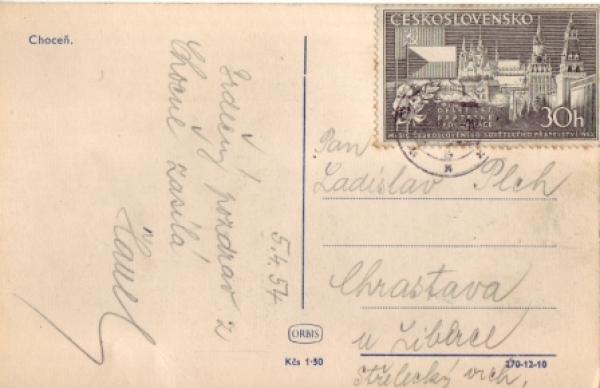 Choceň.
Srdečný pozdrav z
Chocně zasílá
5.4.54
ČESKOSLOVENSKO
30h
MĚSÍC ČESKOSLOVENSKO-SOVĚTSKÉHO PŘÁTELSTVÍ 1953
Pan
Ladislav Plch
Chrastava
u Liberce
Střelecký vrch,
ORBIS
Kčs 1·50
270-12-10